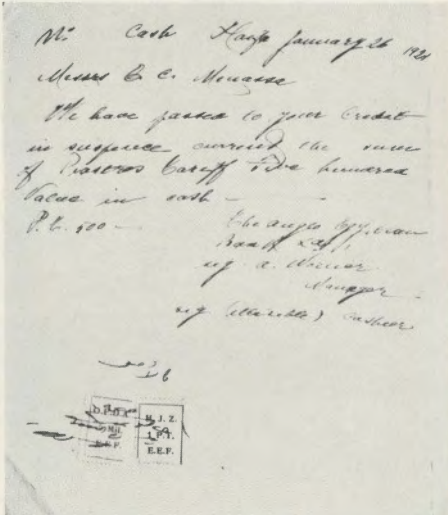 No. Cash Haifa January 26 1921
Messrs B. C. Menasse
We have passed to your Credit
in suspence current the sum
of Piastres tariff Five hundred
Value in cash —
P.T. 500 —
The Anglo Egyptian
Bank Ltd.
sig. a.
Manager
sig (illegible) Cashier
H.J.Z.
1 P.T.
E.E.F.